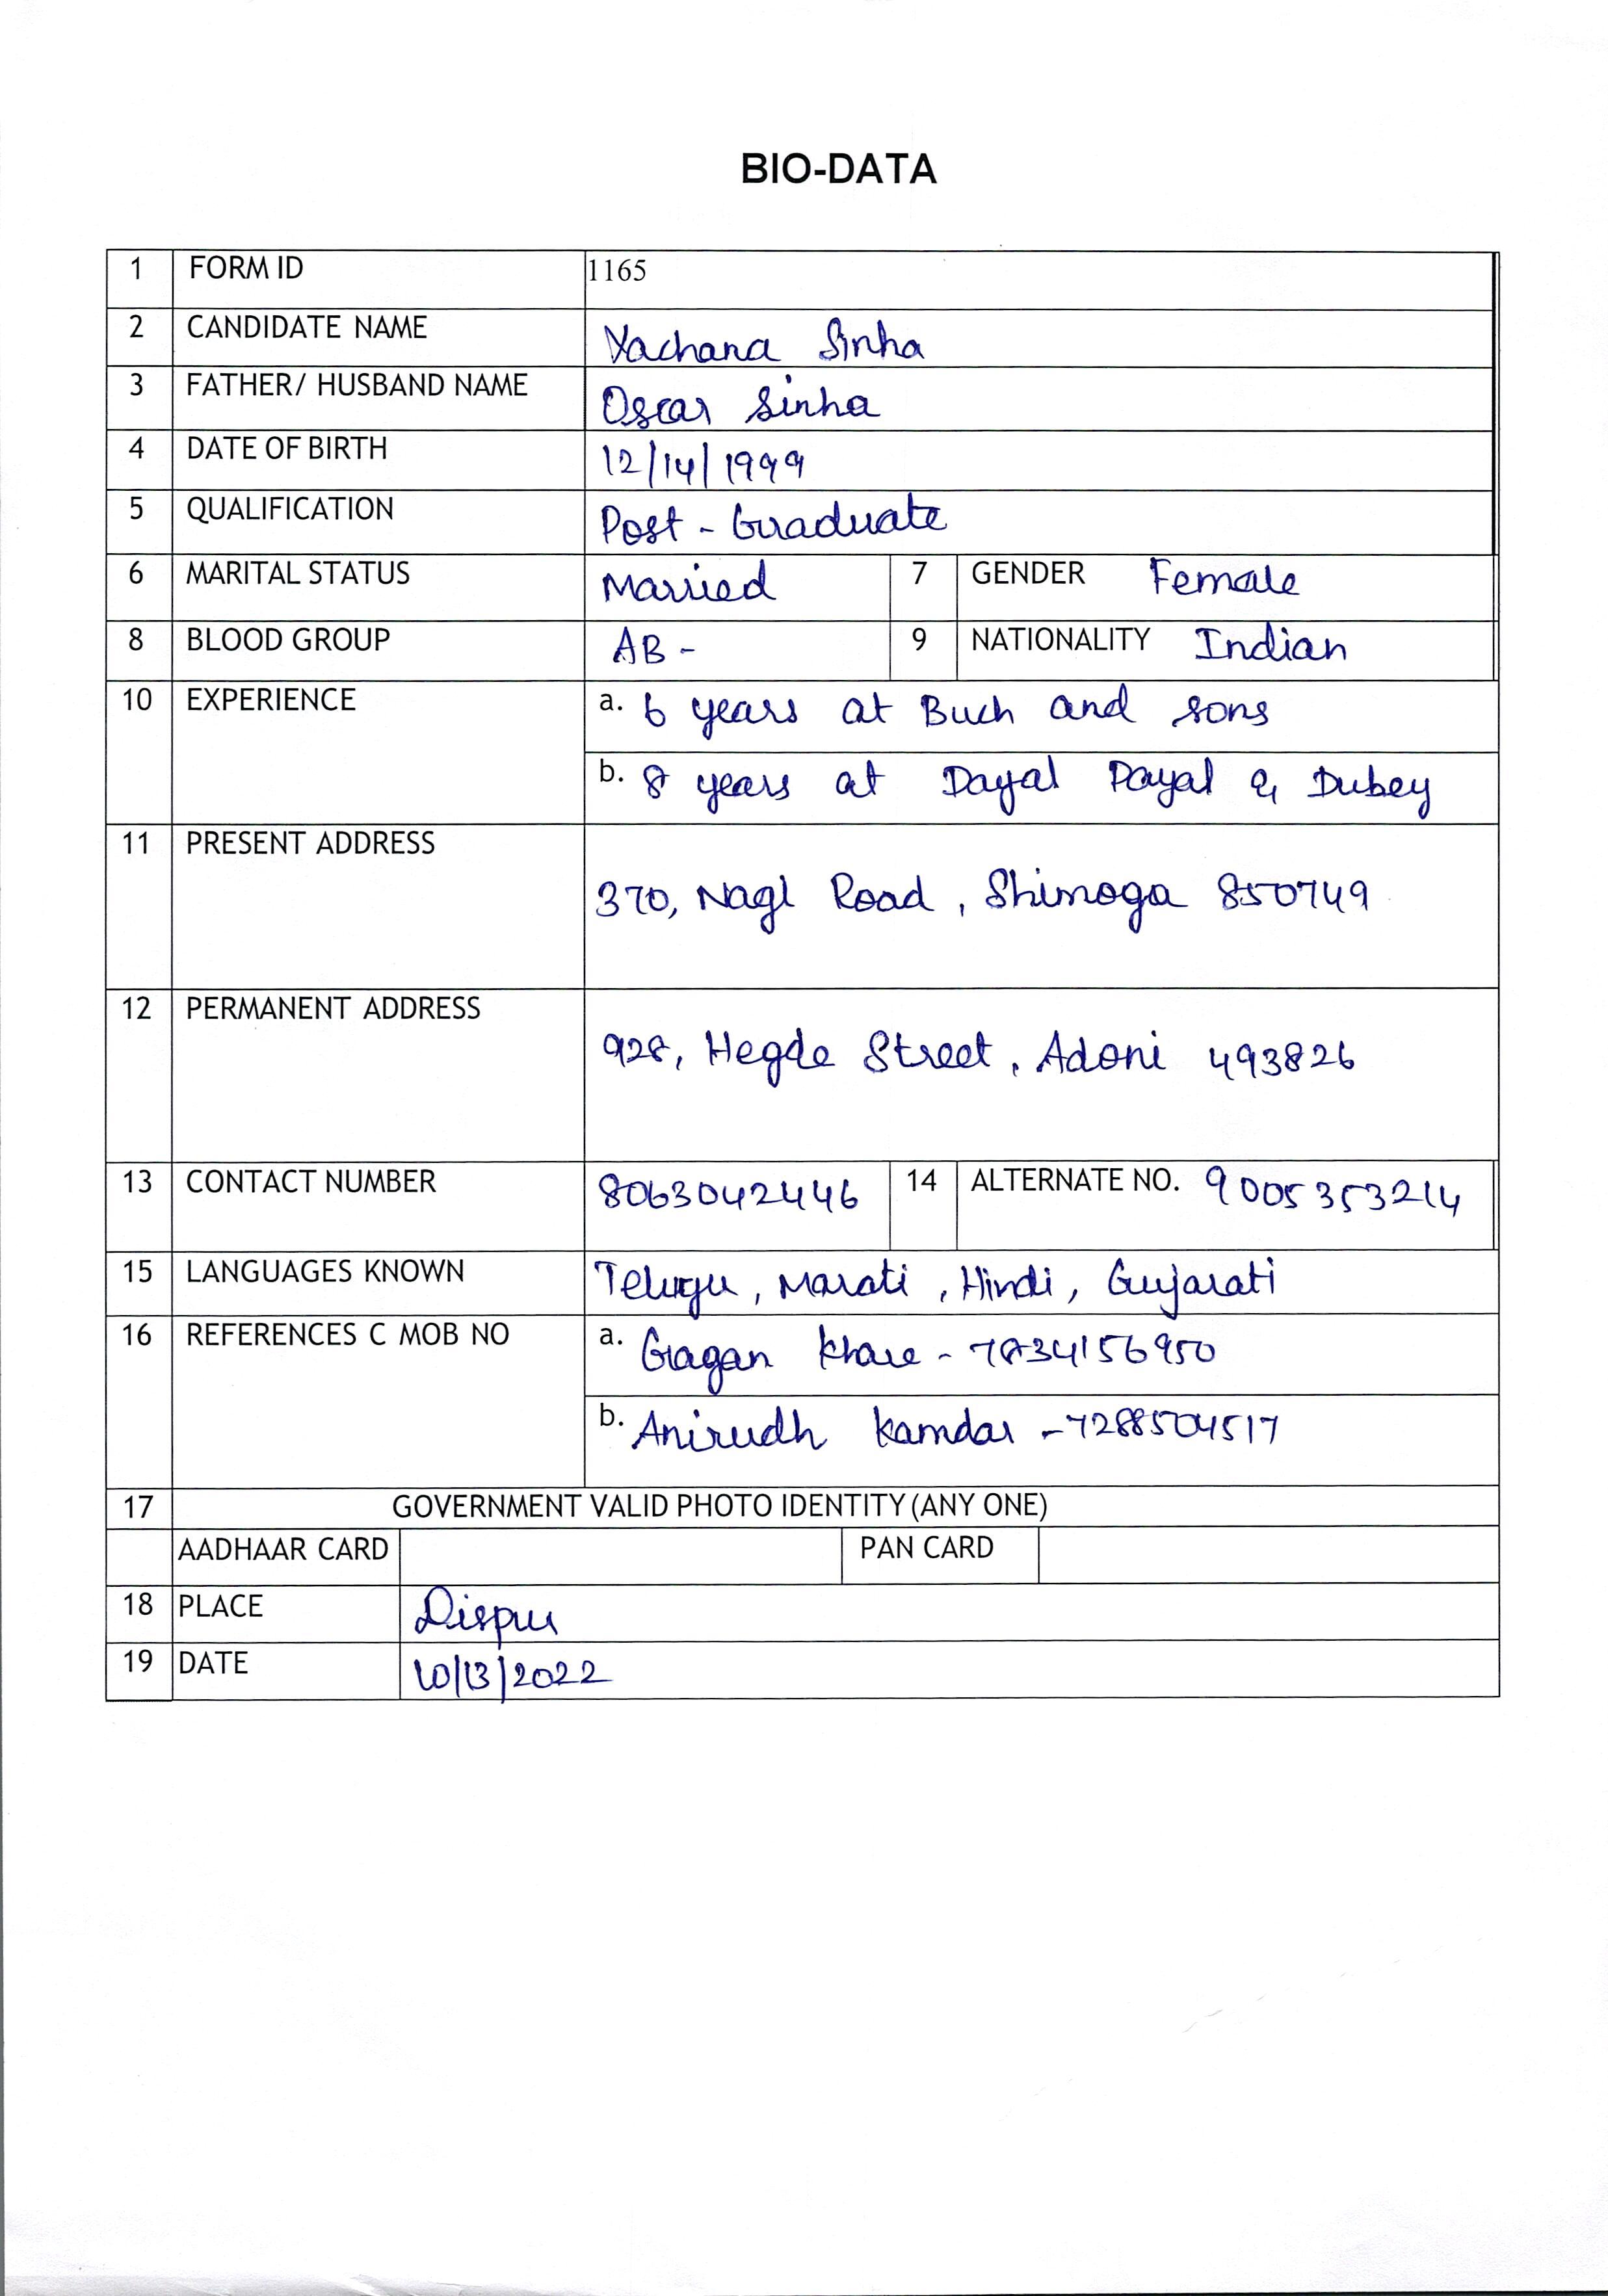 BIO-DATA
1 FORM ID 1165
2 CANDIDATE NAME Yachana Sinha
3 FATHER/ HUSBAND NAME Oscar Sinha
4 DATE OF BIRTH 12/14/1999
5 QUALIFICATION Post - Graduate
6 MARITAL STATUS Married 7 GENDER Female
8 BLOOD GROUP AB- 9 NATIONALITY Indian
10 EXPERIENCE a. 6 years at Buch and sons
b. 8 years at Dayal Dayal & Dubey
11 PRESENT ADDRESS
370, Nagl Road, Shimoga 850749
12 PERMANENT ADDRESS
928, Hegde Street, Adoni 493826
13 CONTACT NUMBER 8063042446 14 ALTERNATE NO. 9005353214
15 LANGUAGES KNOWN Telugu, Marati, Hindi, Gujarati
16 REFERENCES C MOB NO a. Gagan Khare - 7834156950
b. Anirudh Kamdar - 7288504517
17 GOVERNMENT VALID PHOTO IDENTITY (ANY ONE)
AADHAAR CARD PAN CARD
18 PLACE Dispur
19 DATE 10/13/2022